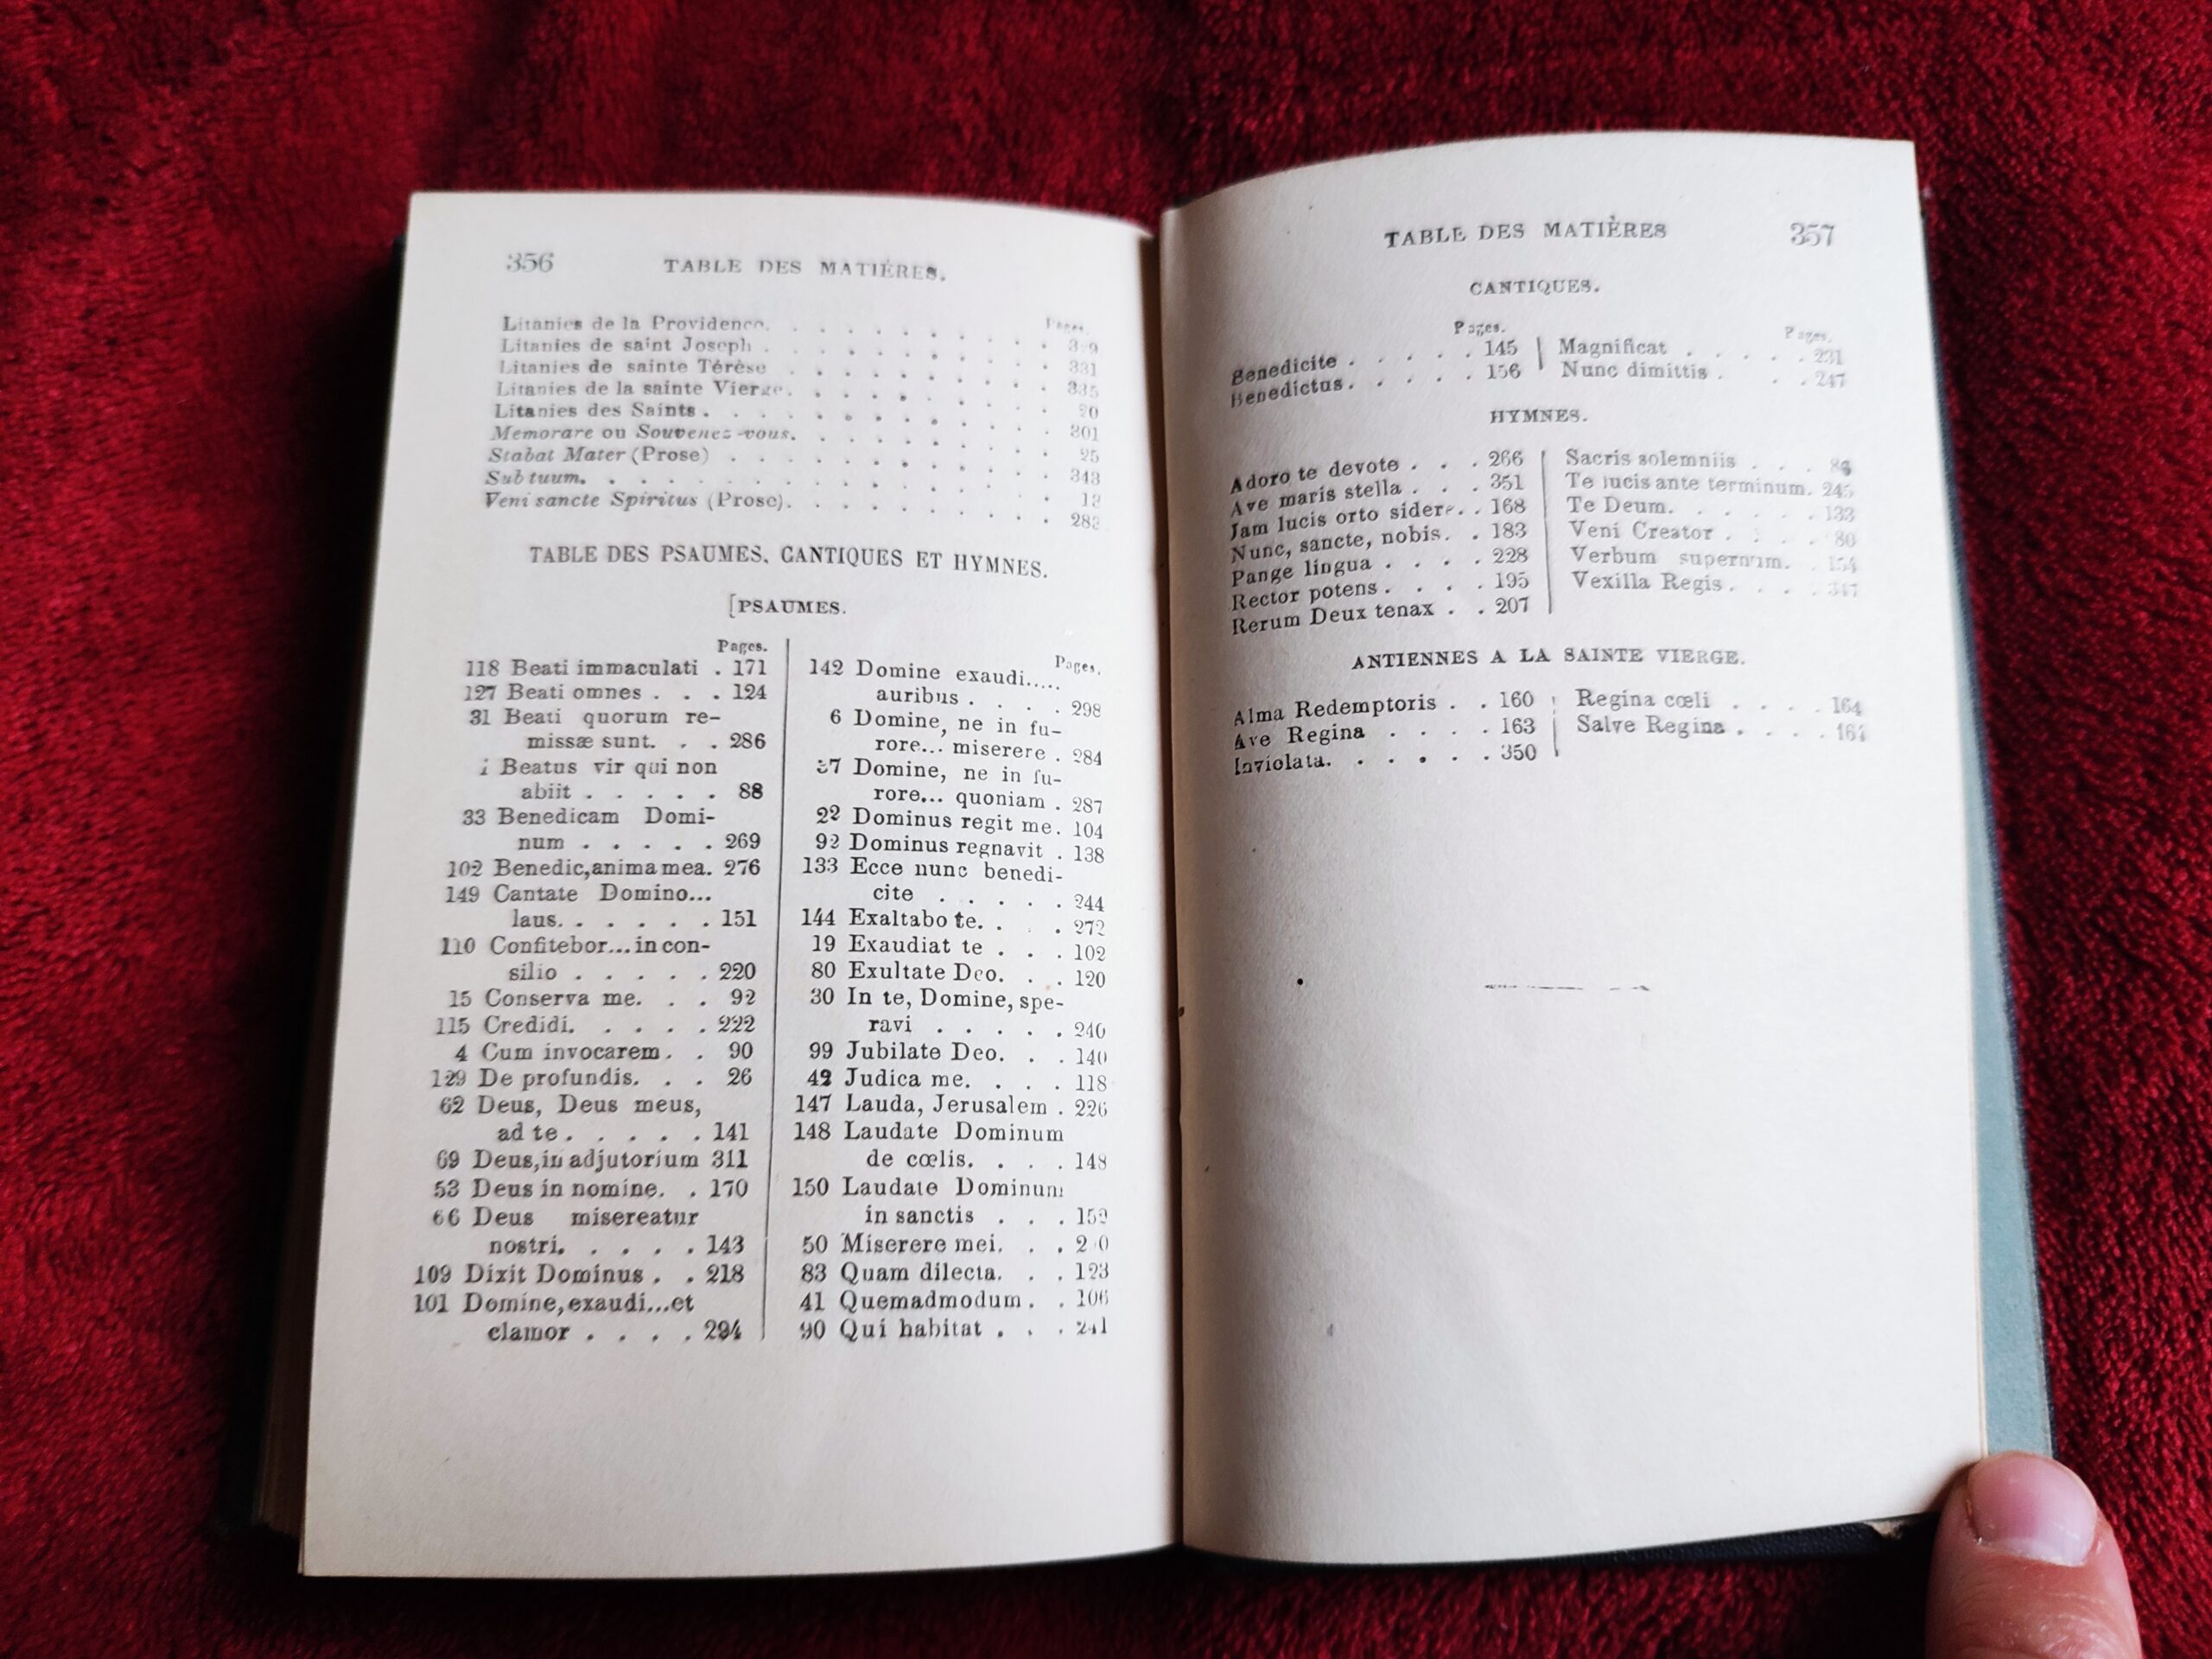 356 TABLE DES MATIÈRES.
Pages.
Litanies de la Providence. . . . . . . . . . .
Litanies de saint Joseph . . . . . . . . . . . 331
Litanies de sainte Térèse . . . . . . . . . . . 335
Litanies de la sainte Vierge. . . . . . . . . . . 20
Litanies des Saints. . . . . . . . . . . 301
Memorare ou Souvenez-vous. . . . . . . . . . . 25
Stabat Mater (Prose) . . . . . . . . . . . 343
Sub tuum. . . . . . . . . . . 12
Veni sancte Spiritus (Prose). . . . . . . . . . . 282
TABLE DES PSAUMES, CANTIQUES ET HYMNES.
[PSAUMES.
Pages.
118 Beati immaculati . 171
127 Beati omnes . . . 124
31 Beati quorum re-
missæ sunt. . . 286
1 Beatus vir qui non
abiit . . . . . 88
33 Benedicam Domi-
num . . . . . 269
102 Benedic, anima mea. 276
149 Cantate Domino...
laus. . . . . . 151
110 Confitebor... in con-
silio . . . . . 220
15 Conserva me. . . 92
115 Credidi. . . . . 222
4 Cum invocarem. . 90
129 De profundis. . . 26
62 Deus, Deus meus,
ad te. . . . . . 141
69 Deus, in adjutorium 311
53 Deus in nomine. . 170
66 Deus misereatur
nostri. . . . . 143
109 Dixit Dominus . . 218
101 Domine, exaudi...et
clamor . . . . 294
Pages.
142 Domine exaudi.....
auribus . . . . 298
6 Domine, ne in fu-
rore... miserere . 284
37 Domine, ne in fu-
rore... quoniam . 287
22 Dominus regit me. 104
92 Dominus regnavit . 138
133 Ecce nunc benedi-
cite . . . . . 244
144 Exaltabo te. . . . 272
19 Exaudiat te . . . 102
80 Exultate Deo. . . 120
30 In te, Domine, spe-
ravi . . . . . 240
99 Jubilate Deo. . . 140
42 Judica me. . . . 118
147 Lauda, Jerusalem . 226
148 Laudate Dominum
de cœlis. . . . 148
150 Laudate Dominum
in sanctis . . .
50 Miserere mei. . .
83 Quam dilecta. . . 123
41 Quemadmodum. . 106
90 Qui habitat . . . 241
TABLE DES MATIÈRES 357
CANTIQUES.
Pages.
Benedicite . . . . . 145
Benedictus. . . . . 156
Pages.
Magnificat . . . . . 231
Nunc dimittis . . . 247
HYMNES.
Adoro te devote . . . 266
Ave maris stella . . . 351
Jam lucis orto sidere. . 168
Nunc, sancte, nobis. . 183
Pange lingua . . . . 228
Rector potens. . . . 195
Rerum Deux tenax . . 207
Sacris solemniis . . .
Te lucis ante terminum. 245
Te Deum. . . . . . 133
Veni Creator . . . . 80
Verbum supernum. . 154
Vexilla Regis. . . . 347
ANTIENNES A LA SAINTE VIERGE.
Alma Redemptoris . . 160
Ave Regina . . . . 163
Inviolata. . . . . . 350
Regina cœli . . . . 164
Salve Regina . . . .